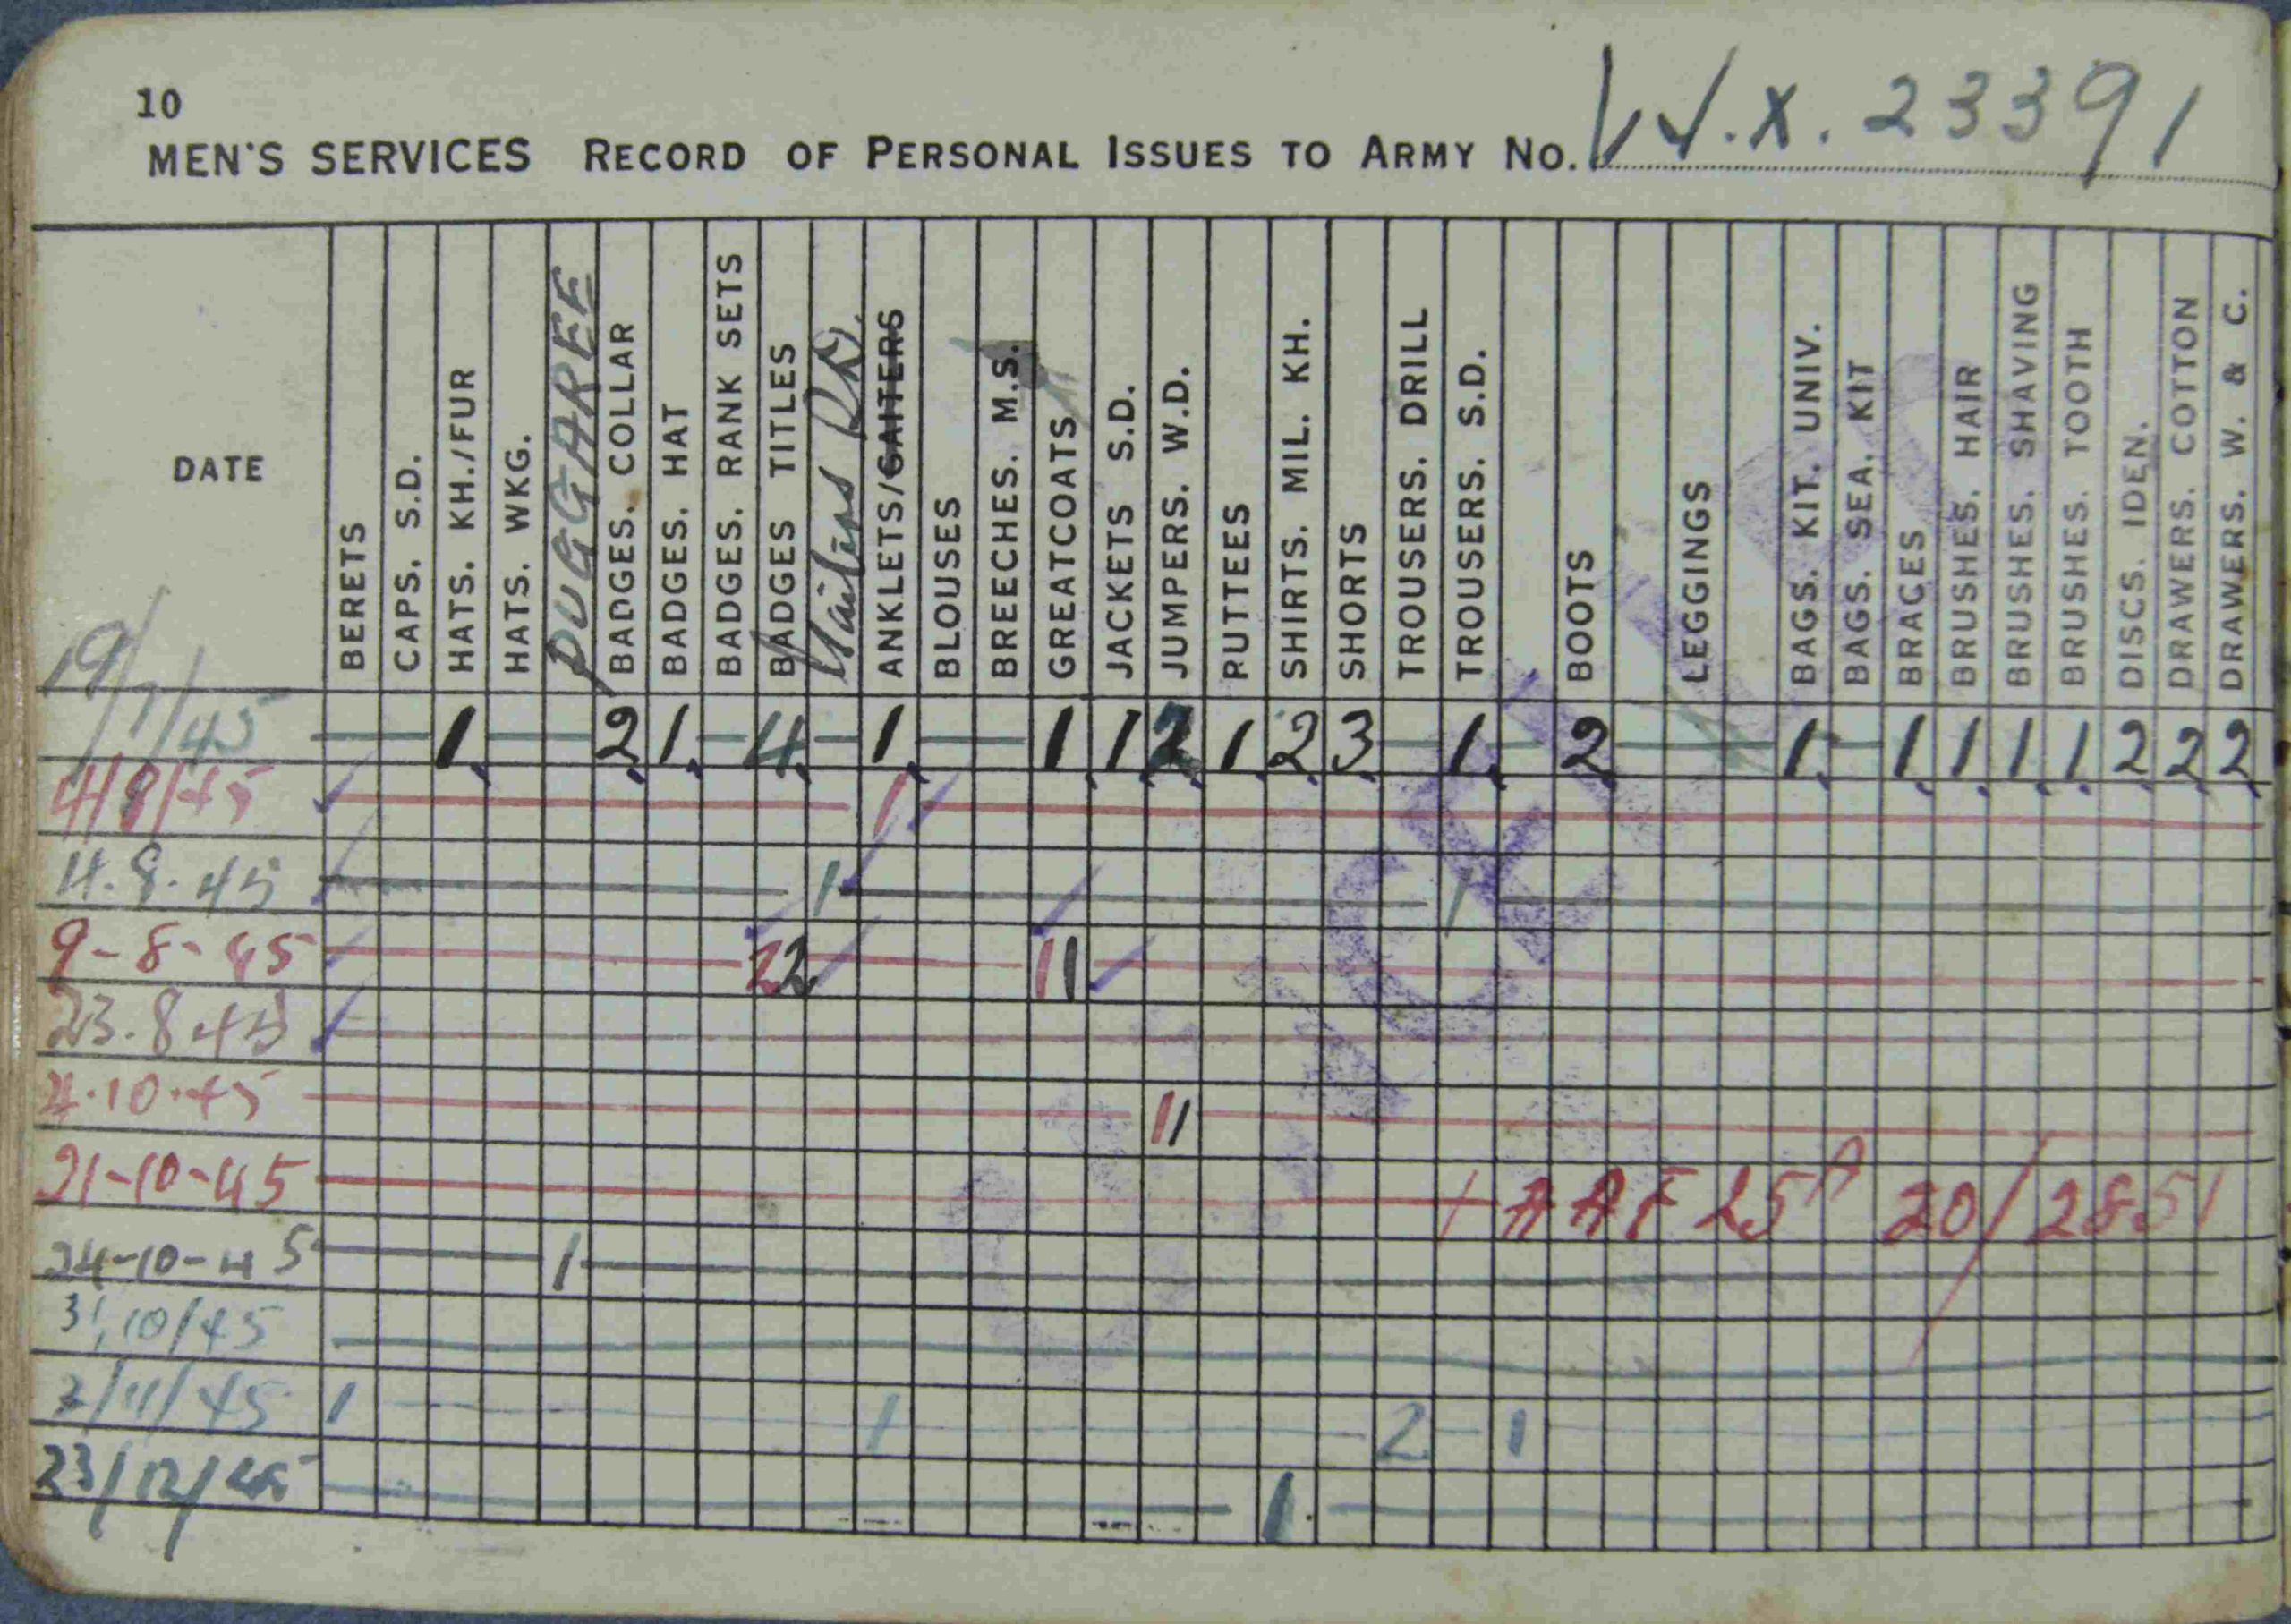 10
MEN'S SERVICES RECORD OF PERSONAL ISSUES TO ARMY No. W.X. 23391
DATE
BERETS
CAPS. S.D.
HATS. KH./FUR
HATS. WKG.
PUGGAREE
BADGES. COLLAR
BADGES. HAT
BADGES. RANK SETS
BADGES TITLES
ANKLETS/GAITERS
BLOUSES
BREECHES. M.S.
GREATCOATS
JACKETS S.D.
JUMPERS. W.D.
PUTTEES
SHIRTS. MIL. KH.
SHORTS
TROUSERS. DRILL
TROUSERS. S.D.
BOOTS
LEGGINGS
BAGS. KIT. UNIV.
BAGS. SEA. KIT
BRACES
BRUSHES. HAIR
BRUSHES. SHAVING
BRUSHES. TOOTH
DISCS. IDEN.
DRAWERS. COTTON
DRAWERS. W. & C.
19/7/45 1. 2. 1. 4. 1. 1 1 2 1. 2 3 1. 2 1. 1 1 1 1 2 2 2
4/8/45 1
4.8.45 1 1
9-8-45 2 2 1 1
23.8 45
4.10.45 1 1
21-10-45 1 A A F 25A 20/2851
24-10-45 1
31/10/45
2/11/45 1 1 2 1
23/12/45 1